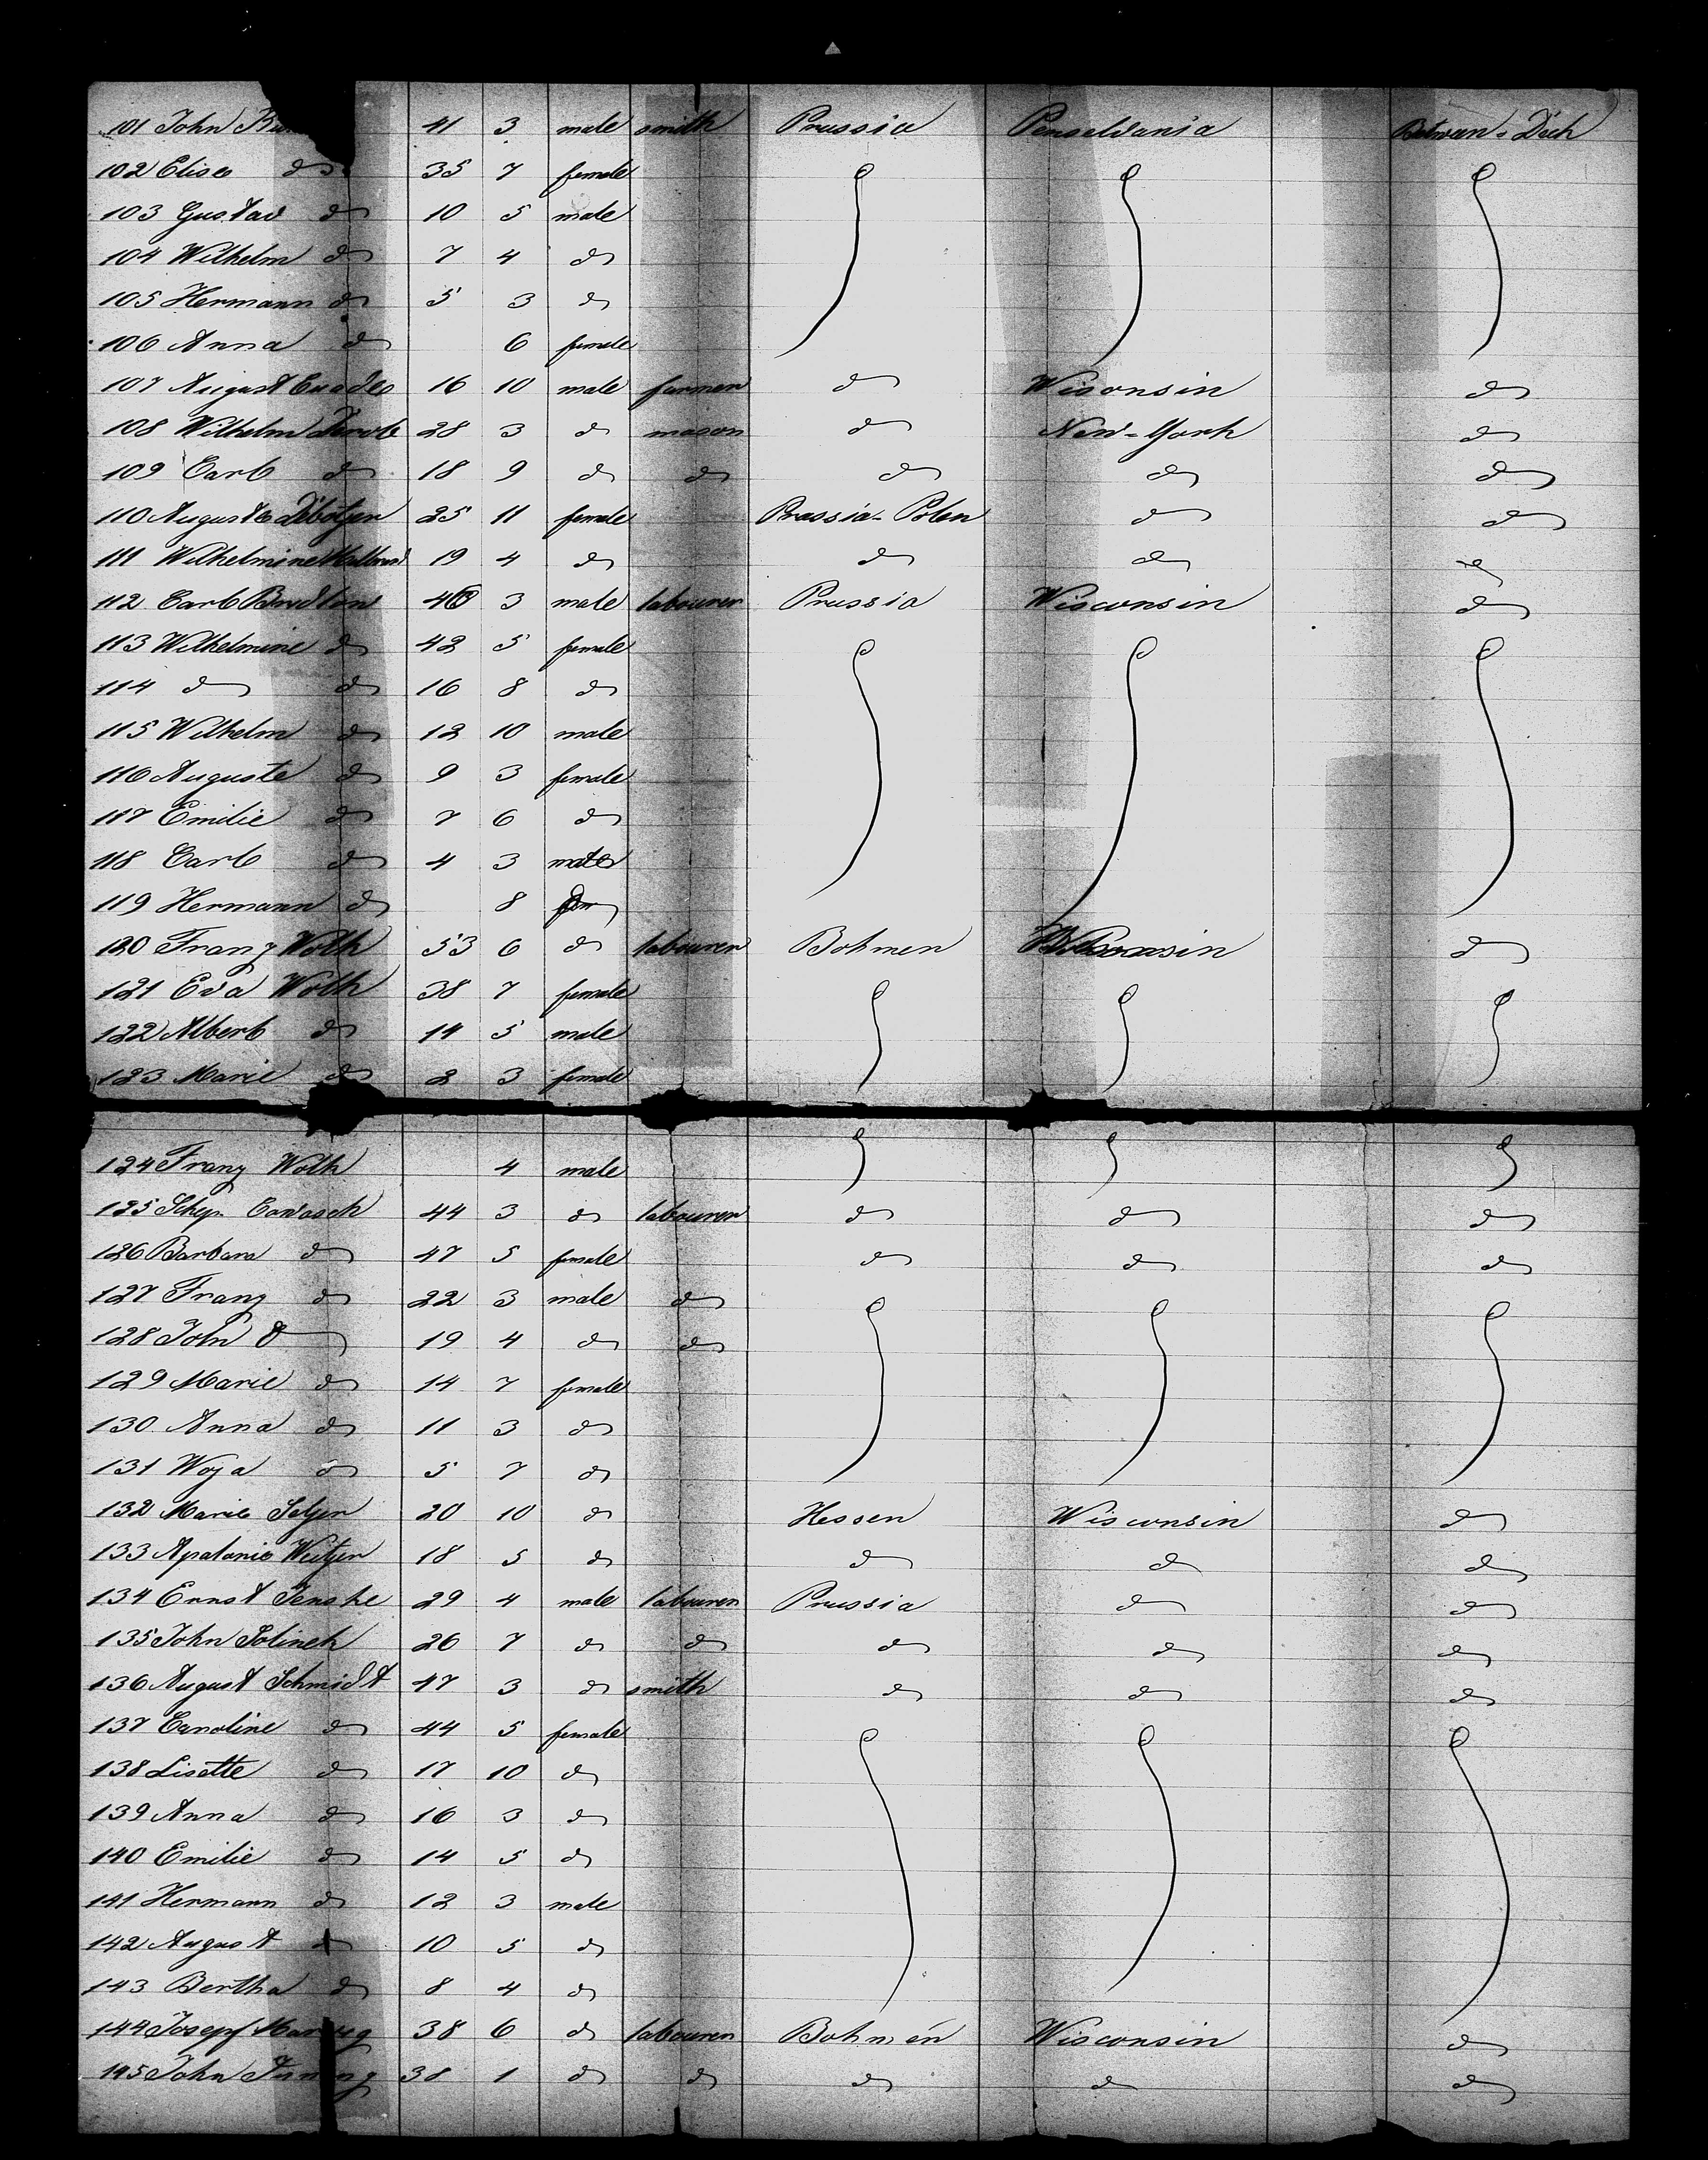 101 John 41 3 male smith Prussia Penseldania Betwean-Deck
102 Elise do 35 7 female
103 Gustav do 10 5 male
104 Wilhelm do 7 4 do
105 Hermann do 5 3 do
106 Anna do 6 female
107 August 16 10 male farmer do Wisconsin do
108 Wilhelm 28 3 do mason do New-York do
109 Carl do 18 9 do do do do do
110 Auguste 25 11 female Prussia-Polen do do
111 Wilhelmine 19 4 do do do do
112 Carl 3 male labourer Prussia Wisconsin do
113 Wilhelmine do 42 5 female
114 do do 16 8 do
115 Wilhelm do 12 10 male
116 Auguste do 9 3 female
117 Emilie do 7 6 do
118 Carl do 4 3 male
119 Hermann do 8
120 Franz Woth 53 6 do labourer Bohmen Wisconsin do
121 Eva Woth 38 7 female
122 Albert do 14 5 male
123 Marie do 2 3 female
124 Franz Woth 4 male
125 44 3 do labourer do do do
126 Barbara do 47 5 female do do do
127 Franz do 22 3 male do
128 John do 19 4 do do
129 Marie do 14 7 female
130 Anna do 11 3 do
131 Woja do 5 7 do
132 Marie 20 10 do Hessen Wisconsin do
133 18 5 do do do do
134 Ernst Jenske 29 4 male labourer Prussia do do
135 John 26 7 do do do do do
136 August Schmidt 47 3 do smith do do do
137 Caroline do 44 5 female
138 Lisette do 17 10 do
139 Anna do 16 3 do
140 Emilie do 14 5 do
141 Hermann do 12 3 male
142 August do 10 5 do
143 Bertha do 8 4 do
144 Josepf 38 6 do labourer Bohmen Wisconsin do
145 John 38 1 do do do do do